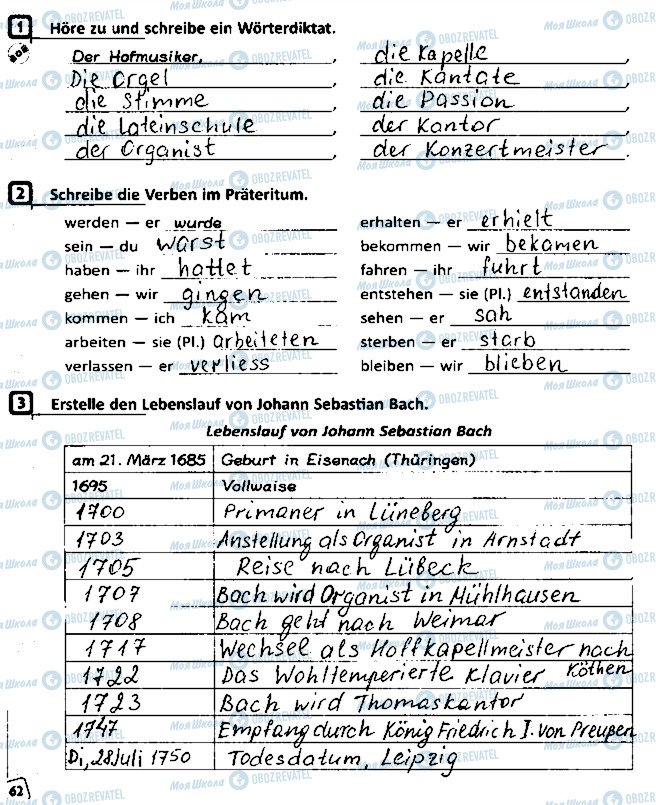 1 Höre zu und schreibe ein Wörterdiktat.
Der Hofmusiker, die Kapelle,
Die Orgel, die Kantate,
die Stimme, die Passion,
die Lateinschule, der Kantor,
der Organist, der Konzertmeister.
2 Schreibe die Verben im Präteritum.
werden — er wurde erhalten — er erhielt
sein — du warst bekommen — wir bekamen
haben — ihr hattet fahren — ihr fuhrt
gehen — wir gingen entstehen — sie (Pl.) entstanden
kommen — ich kam sehen — er sah
arbeiten — sie (Pl.) arbeiteten sterben — er starb
verlassen — er verliess bleiben — wir blieben
3 Erstelle den Lebenslauf von Johann Sebastian Bach.
Lebenslauf von Johann Sebastian Bach
am 21. März 1685 Geburt in Eisenach (Thüringen)
1695 Vollwaise
1700 Primaner in Lüneberg
1703 Anstellung als Organist in Arnstadt
1705 Reise nach Lübeck
1707 Bach wird Organist in Mühlhausen
1708 Bach geht nach Weimar
1717 Wechsel als Hoffkapellmeister nach Köthen
1722 Das Wohltemperierte Klavier
1723 Bach wird Thomaskantor
1747 Empfang durch König Friedrich I. von Preußen
Di, 28 Juli 1750 Todesdatum, Leipzig
62
Моя Школа OBOZREVATEL